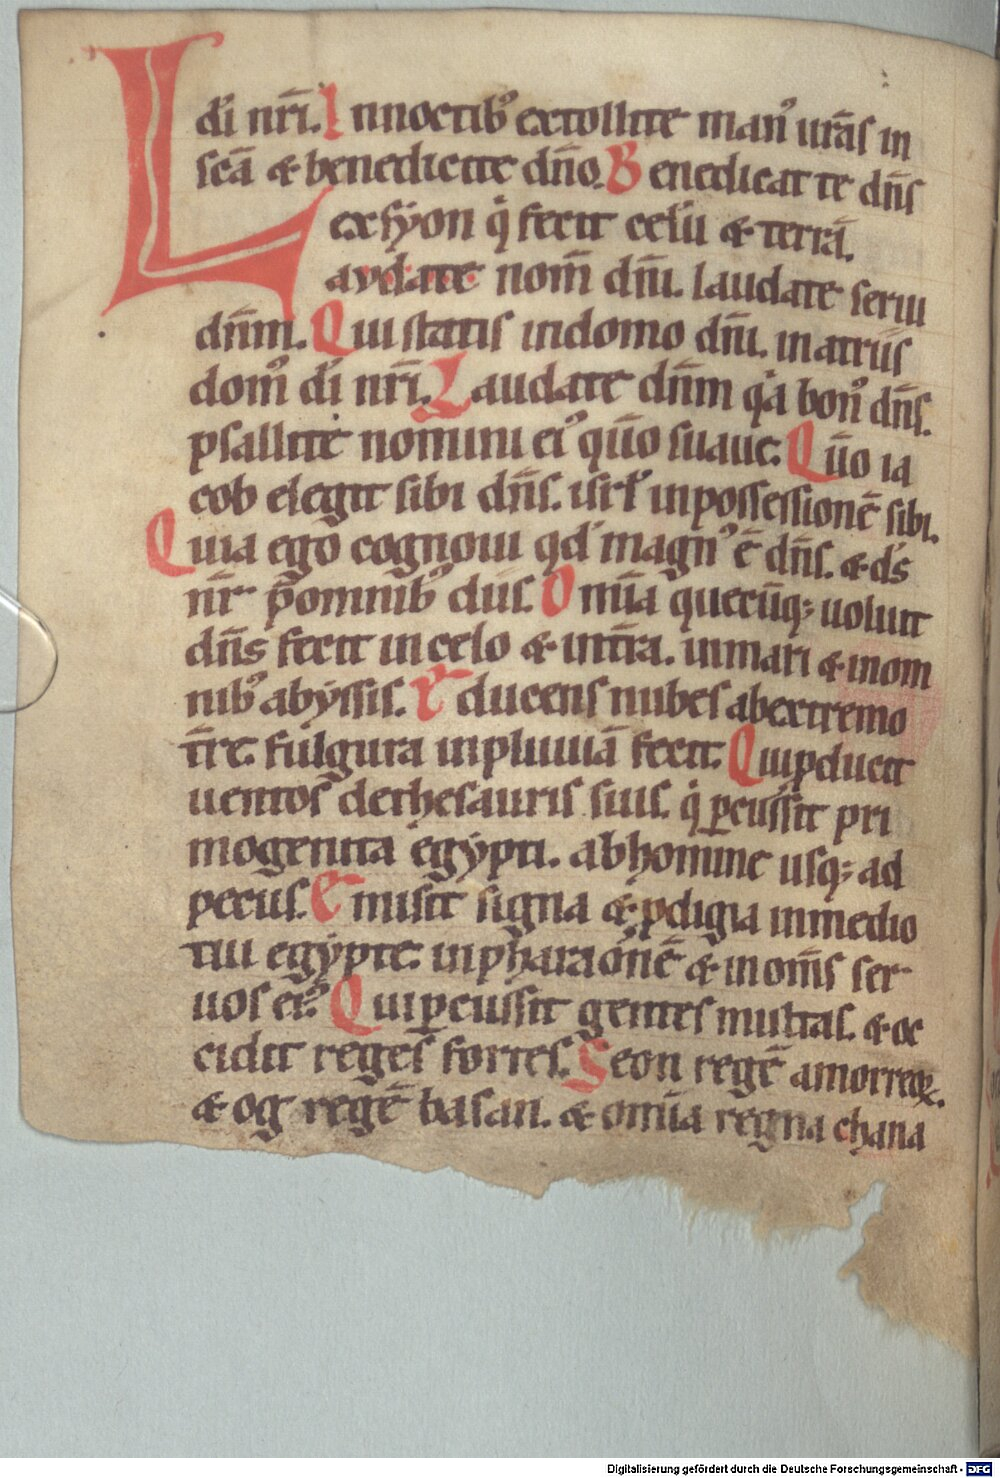 dī nr̄i. Innoctibꝰ extollite manꝰ urās in
scā & benedicite dn̄o. Benedicat te dn̄s
ex syon q̇ fecit celū & terrā.
Laudate nom̄ dn̄i. laudate serui
dn̄m. Qui statis indomo dn̄i. in atriis
domꝰ dī nr̄i. Laudate dn̄m q̇a bonꝰ dn̄s.
psallite nomini eiꝰ qūo suaue. Qūo ia
cob elegit sibi dn̄s. isrl̄ inpossessionē sibi.
Quia ego cognoui qd̄ magnꝰ ē dn̄s. & ds̄
nr̄ p̄ omnibꝰ diis. Omīa quecūq; uoluit
dn̄s fecit in celo & intr̄a. inmari & inom
nibꝰ abyssis. Educens nubes abextremo
tr̄e. fulgura inpluuiā fecit. Qui ꝓducit
uentos dethesauris suis. q̇ ꝑcussit pri
mogenita egypti. abhomine usq; ad
pecus. Emisit signa & ꝓdigia inmedio
tui egypte. inpharaonē & inom̄s ser
uos eiꝰ. Qui ꝑcussit gentes multas. & oc
cidit reges fortes. Seon regē amorreoꝝ.
& og regē basan. & omīa regna chana
Digitalisierung gefördert durch die Deutsche Forschungsgemeinschaft - DFG